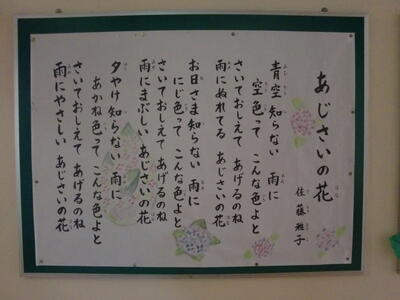 あじさいの花
佐藤雅子
青空知らない 雨に
空色って こんな色よと
さいておしえて あげるのね
雨にぬれてる あじさいの花
お日さま知らない 雨に
にじ色って こんな色よと
さいておしえて あげるのね
雨にまぶしい あじさいの花
夕やけ知らない 雨に
あかね色って こんな色よと
さいておしえて あげるのね
雨にやさしい あじさいの花